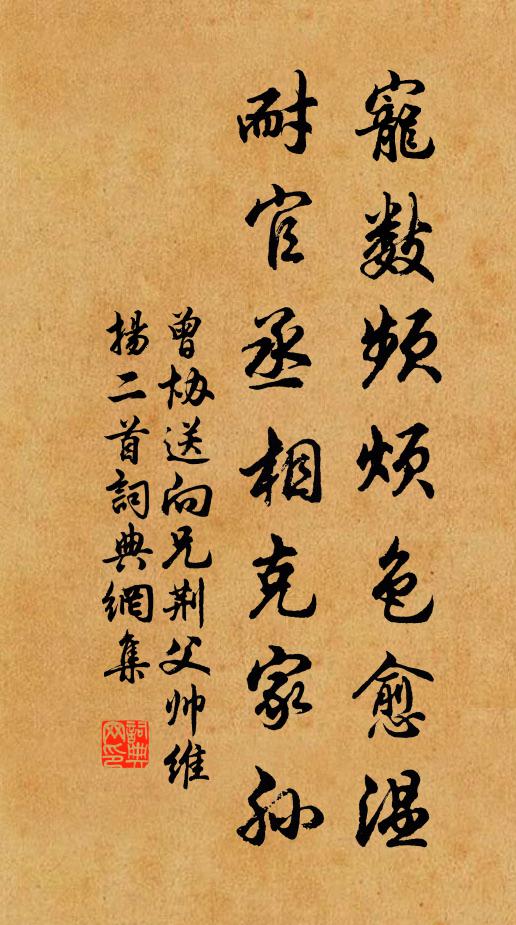 寵數頻煩色愈温
耐官丞相克家孫
曾协送向兄荆父帅維
揚二首詞典網集
詞典網印